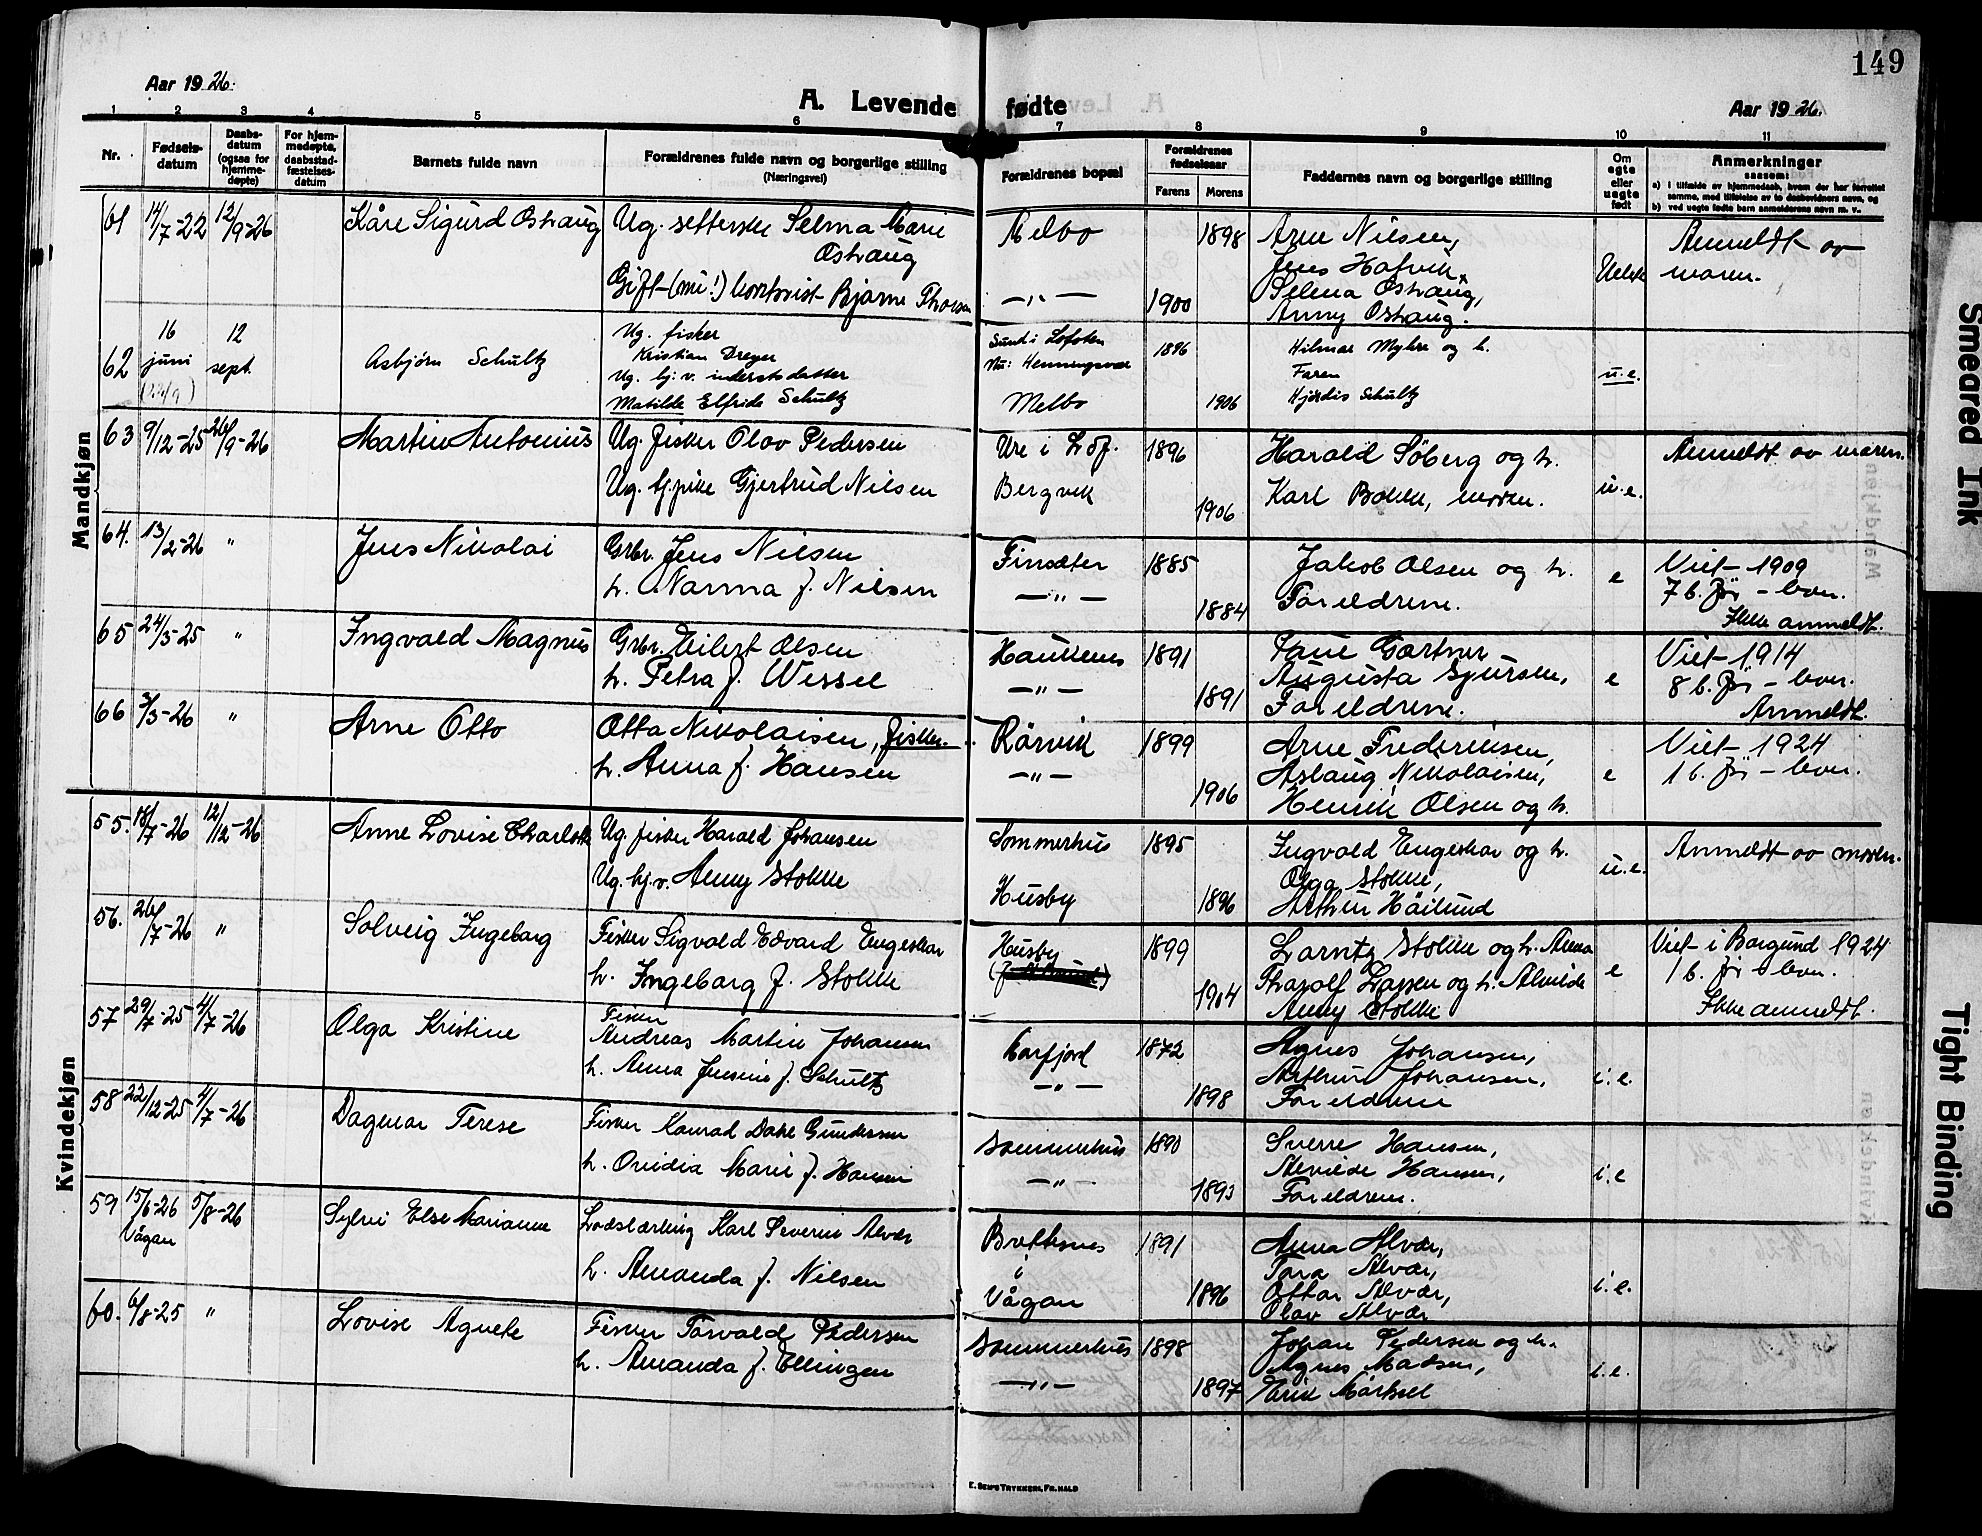 149
Aar 1926.
A. Levende fødte
Aar 1926.
1 2 3 4 5 6 7 8 9 10 11
Nr.
Fødsels-
datum
Daabs-
datum
(ogsaa for
hjemme-
døpte)
For hjem-
medøpte,
daabsstad-
fæstelses-
datum
Barnets fulde navn
Forældrenes fulde navn og borgerlige stilling
(Næringsvei)
Forældrenes bopæl
Forældrenes
fødselsaar
Farens
Morens
Faddernes navn og borgerlige stilling
Om
ægte
eller
uægte
født
Anmerkninger
saasom:
a) i tilfælde av hjemmedaab, hvem der har forrettet
samme, med tilføielse av to daabsvidners navn, og
b) ved uegte fødte barn anmelderens navn m. v.
Mandkjøn
61 14/7-22 12/9-26 Kåre Sigurd Ostraug
Ug. Selma Marie
Ostraug
Gift (mi!) Bjarne Thorsen
Melbo
—„—
1898
1900
Arne Nilsen,
Jens Hafvik,
Selma Ostraug,
Anny Ostraug.
Uekte
Anmeldt av
moren.
62 16 juni 12 sept. Asbjørn Schultz
Ug. fisker
Kristian Dreyer
Ug. hj.v. inderstsdatter
Matilde Elfride Schultz
Sund i Lofoten
Nu: Henningsvær
Melbo
1896
1906
Hilmar Myhre og h.
Faren
Hjørdis Schultz
u.e.
63 9/12-25 26/9-26 Martin Antonius
Ug. fisker Olav Pedersen
Ug. tj.pike Gjertrud Nilsen
Ure i Lof.
Bergvik
1896
1906
Harald Søberg og h.
Karl Bakke, moren.
u.e.
Anmeldt av moren.
64. 13/2-26 „ Jens Nikolai
Grbr. Jens Nilsen
h. Narma f. Nilsen
Finsæter
—„—
1885
1884
Jakob Olsen og h.
Foreldrene.
e
Viet 1909
7 b. før - lever.
Ikke anmeldt.
65 24/3-25 „ Ingvald Magnus
Grbr. Eilert Olsen
h. Petra f. Wessel
Haukenes
—„—
1891
1891
Gærtner
Augusta Sjursen,
Foreldrene.
e
Viet 1914
8 b. før - lever.
Anmeldt.
66 3/3-26 „ Arne Otto
Otto Nikolaisen, fisker
h. Anna f. Hansen
Rørvik
—„—
1899
1906
Arne Frederiksen,
Aslaug Nikolaisen,
Henrik Olsen og h.
e
Viet 1924
1 b. før - lever.
Kvindekjøn
55. 18/7-26 12/12-26 Anne Lovise Charlotte
Ug. fisker Harald Johansen
Ug. hj.v. Anny Stokke
Sommerhus
Husby
1895
1896
Ingvald Engeskar og h.
Olga Stokke,
Arthur Høilund
u.e.
Anmeldt av moren.
56. 26/7-26 „ Solveig Ingeborg
Fisker Sigvald Edvard Engeskar
h. Ingeborg f. Stokke
Husby
1899
1904
Larntz Stokke og h. Anna
Tharolf Lassen og h. Alvilde
Anny Stokke
e
Viet i Borgund 1924
1 b. før - lever.
Ikke anmeldt.
57 29/7-25 4/7-26 Olga Kristine
Fisker
Andreas Martin Johansen
h. Anna Jensine f. Schultz
Karfjord
—„—
1872
1898
Agnes Johansen,
Arthur Johansen,
Foreldrene
i.e.
58 22/12-25 4/7-26 Dagmar Terese
Fisker Konrad Dahl Gundersen
h. Ovidia Marie f. Hansen
Sommerhus
—„—
1890
1893
Sverre Hansen,
Alvilde Hansen,
Foreldrene.
i.e
59 15/6-26 5/8-26 Sylvi Else Marianne
Vågan
Lodslærling Karl Severin Alvær
h. Amanda f. Nilsen
Brettesnes
i
Vågan
1891
1896
Anna Alvær,
Tora Alvær,
Ottar Alvær,
Olav Alvær
i.e.
60. 6/8-25 „ Lovise Agnete
Fisker Torvald Pedersen
h. Amanda f. Ellingsen
Sommerhus
—„—
1898
1897
Johan Pedersen og h.
Agnes Madsen,
Erik Mørksel
i.e.
E. SEM'S TRYKKERI, FR.HALD
Smeared Ink
Tight Binding